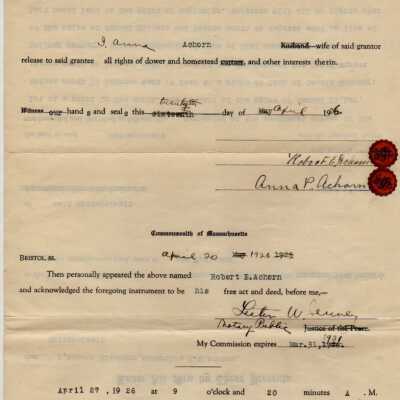 I, Anna Achorn Husband wife of said grantor
release to said grantee all rights of dower and homestead curtesy, and other interests therein.
Witness our hand s and seal s this twentyth sixteenth day of May April 1926
Robert E. Achorn
Anna P. Achorn
Commonwealth of Massachusetts
BRISTOL, ss. April 20 May 1926 1926
Then personally appeared the above named Robert E.Achorn
and acknowledged the foregoing instrument to be his free act and deed, before me,—
W.
Notary Public Justice of the Peace.
My Commission expires Mar.31,
April 27, 1926 at 9 o'clock and 20 minutes A . M.